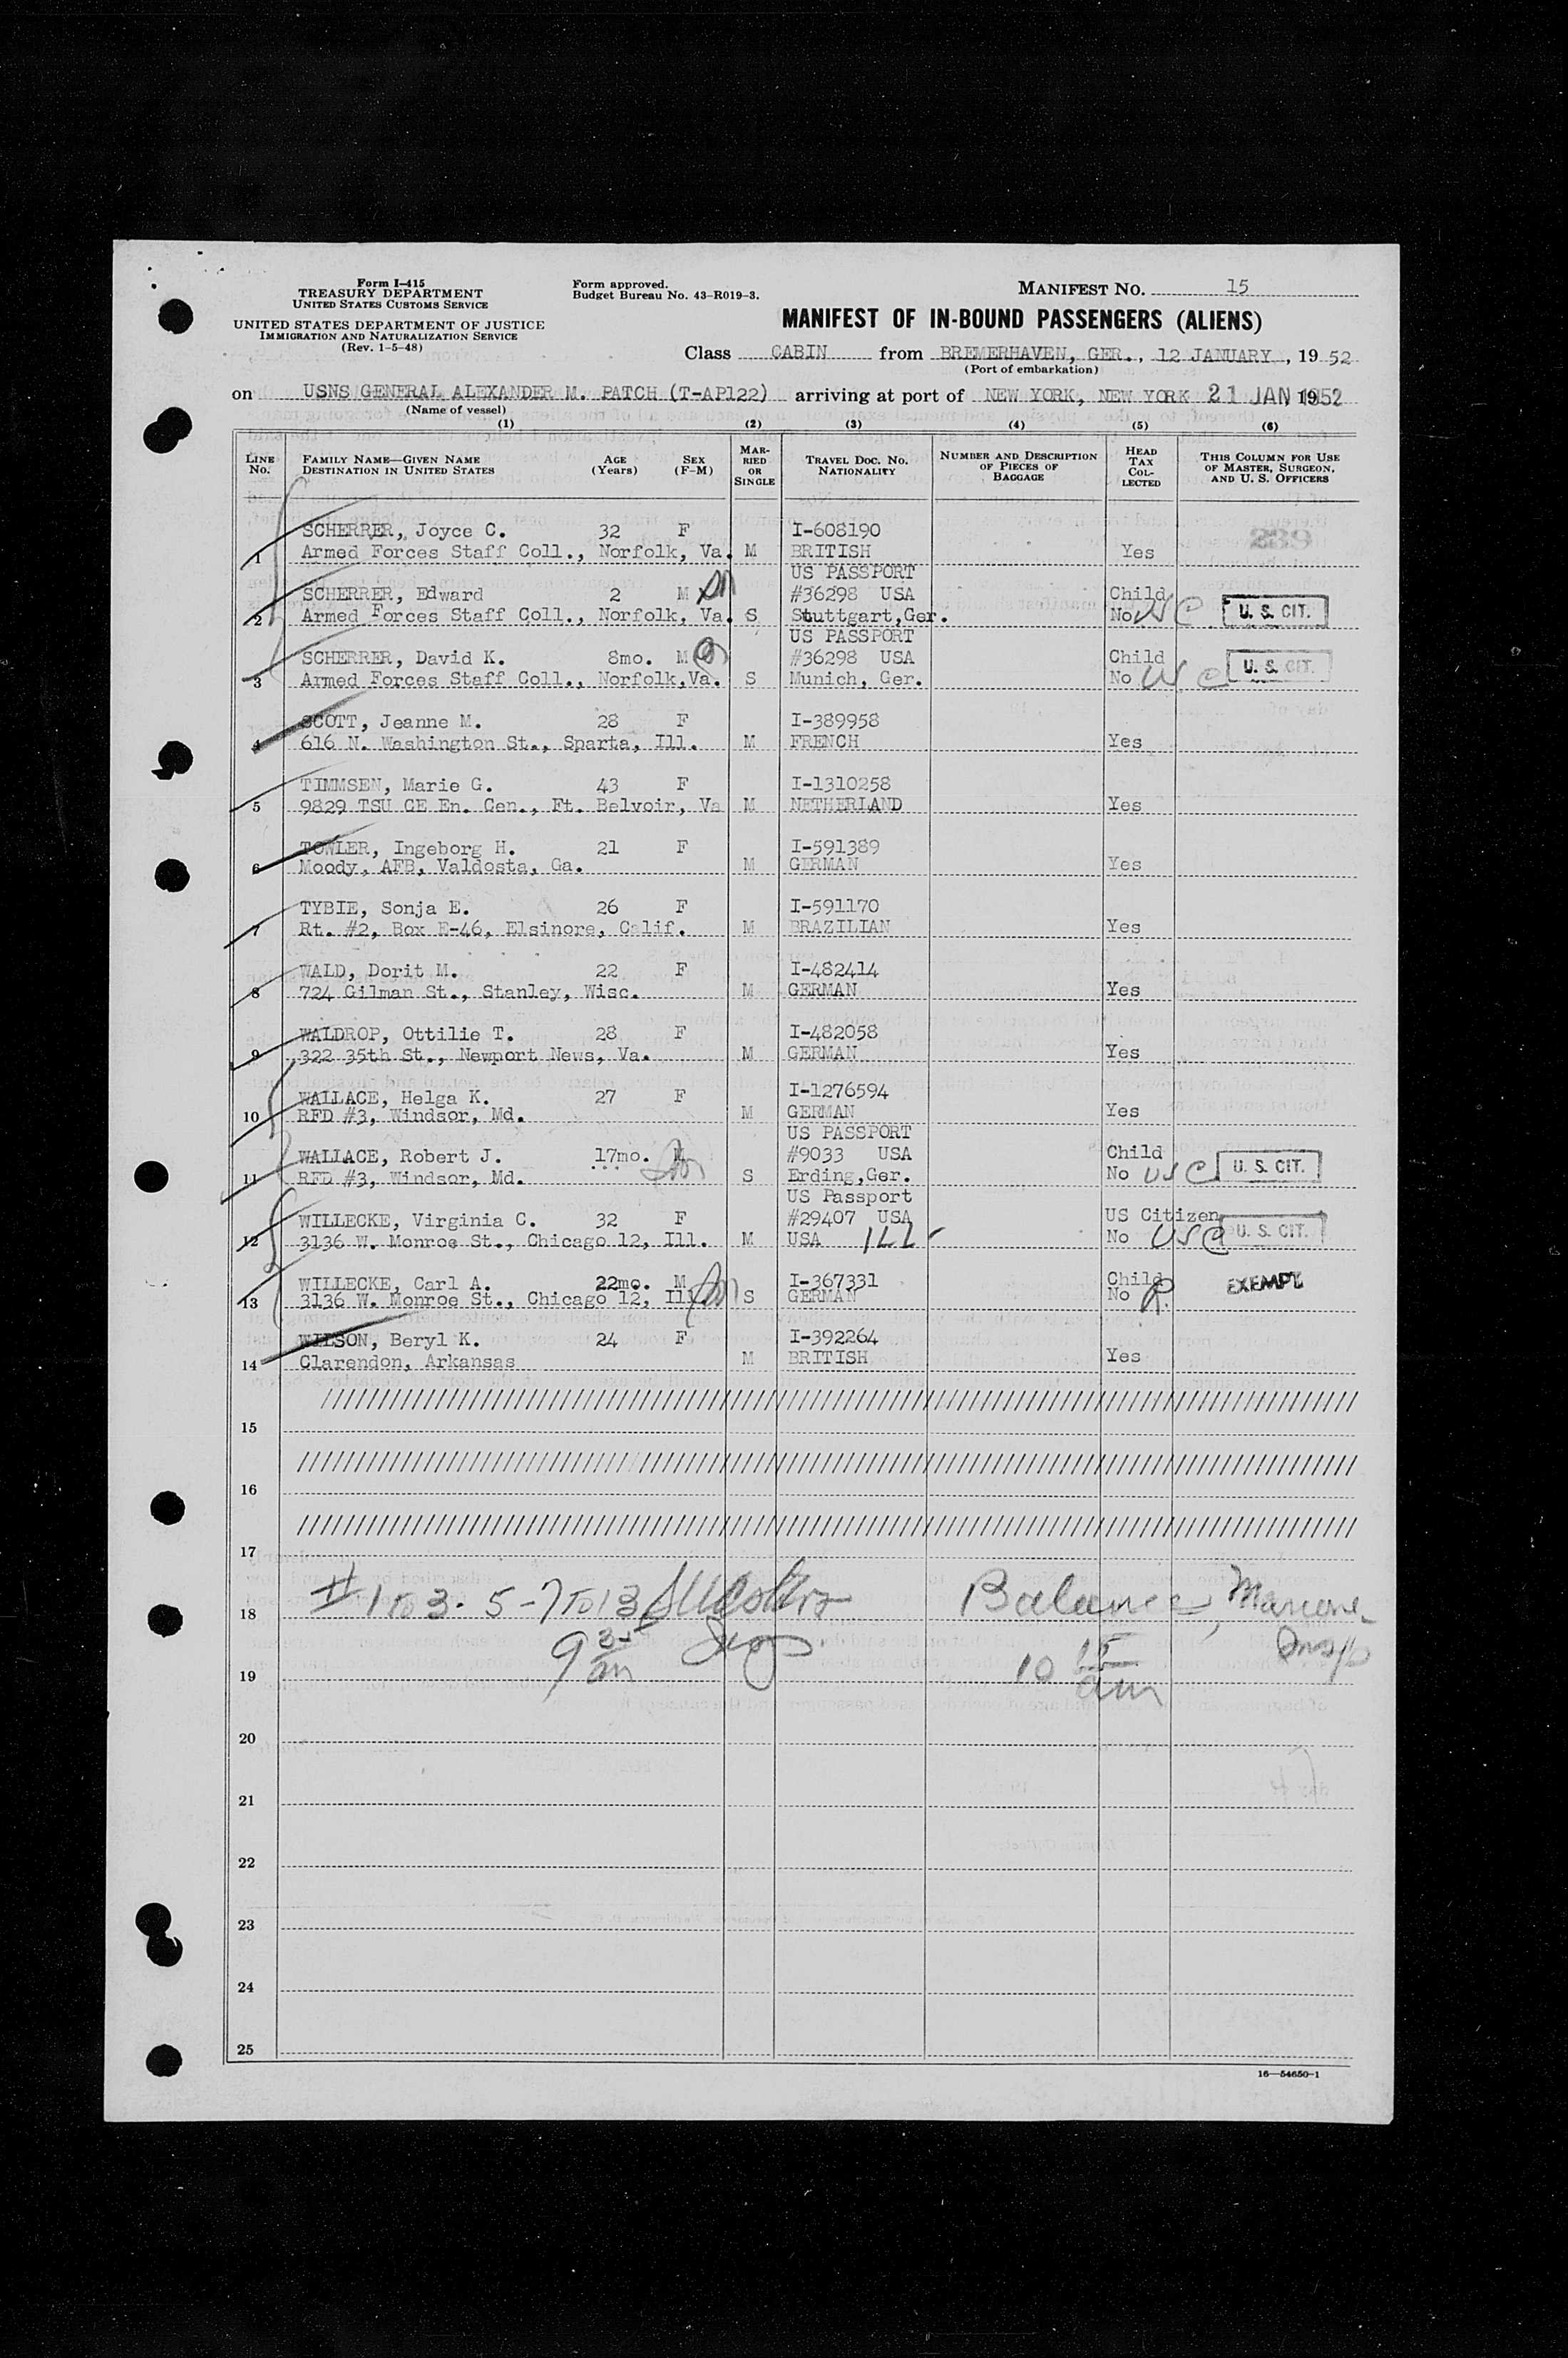 Form I-415
TREASURY DEPARTMENT
UNITED STATES CUSTOMS SERVICE
UNITED STATES DEPARTMENT OF JUSTICE
IMMIGRATION AND NATURALIZATION SERVICE
(Rev. 1-5-48)
Form approved.
Budget Bureau No. 43-R019-3.
MANIFEST NO. 15
MANIFEST OF IN-BOUND PASSENGERS (ALIENS)
Class CABIN from BREMERHAVEN, GER., 12 JANUARY, 19 52
(Port of embarkation)
on USNS GENERAL ALEXANDER M. PATCH (T-AP122) arriving at port of NEW YORK, NEW YORK 21 JAN 1952
(Name of vessel)
(1) (2) (3) (4) (5) (6)
LINE No. FAMILY NAME—GIVEN NAME DESTINATION IN UNITED STATES AGE (Years) SEX (F-M) MARRIED OR SINGLE TRAVEL DOC. NO. NATIONALITY NUMBER AND DESCRIPTION OF PIECES OF BAGGAGE HEAD TAX COLLECTED THIS COLUMN FOR USE OF MASTER, SURGEON, AND U. S. OFFICERS
SCHERRER, Joyce C. 32 F I-608190 239
1 Armed Forces Staff Coll., Norfolk, Va. M BRITISH Yes
US PASSPORT
SCHERRER, Edward 2 M #36298 USA Child
2 Armed Forces Staff Coll., Norfolk, Va. S Stuttgart,Ger. No USC U. S. CIT.
US PASSPORT
SCHERRER, David K. 8mo. M #36298 USA Child
3 Armed Forces Staff Coll., Norfolk,Va. S Munich, Ger. No USC U. S. CIT.
SCOTT, Jeanne M. 28 F I-389958
4 616 N. Washington St., Sparta, Ill. M FRENCH Yes
TIMMSEN, Marie G. 43 F I-1310258
5 9829 TSU CE En. Cen., Ft. Belvoir, Va M NETHERLAND Yes
TOWLER, Ingeborg H. 21 F I-591389
6 Moody, AFB, Valdosta, Ga. M GERMAN Yes
TYBIE, Sonja E. 26 F I-591170
7 Rt. #2, Box E-46, Elsinore, Calif. M BRAZILIAN Yes
WALD, Dorit M. 22 F I-482414
8 724 Gilman St., Stanley, Wisc. M GERMAN Yes
WALDROP, Ottilie T. 28 F I-482058
9 322 35th St., Newport News, Va. M GERMAN Yes
WALLACE, Helga K. 27 F I-1276594
10 RFD #3, Windsor, Md. M GERMAN Yes
US PASSPORT
WALLACE, Robert J. 17mo. M #9033 USA Child
11 RFD #3, Windsor, Md. S Erding,Ger. No USC U. S. CIT.
US Passport
WILLECKE, Virginia C. 32 F #29407 USA US Citizen
12 3136 W. Monroe St., Chicago 12, Ill. M USA ILL. No USC U. S. CIT.
WILLECKE, Carl A. 22mo. M I-367331 Child
13 3136 W. Monroe St., Chicago 12, Ill. S GERMAN No R. EXEMPT
WILSON, Beryl K. 24 F I-392264
14 Clarendon, Arkansas M BRITISH Yes
15
16
17
18 #1 to 3. 5-7 to 13 Balance,
19 9 35 am 10 15 am
20
21
22
23
24
25
16—54650-1